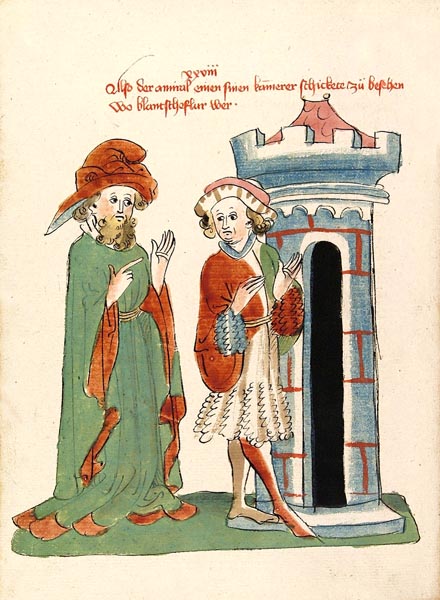 xxviii
Also der amiral einen sinen kamerer schickete zů besehen
Wo blantscheflur wer ·